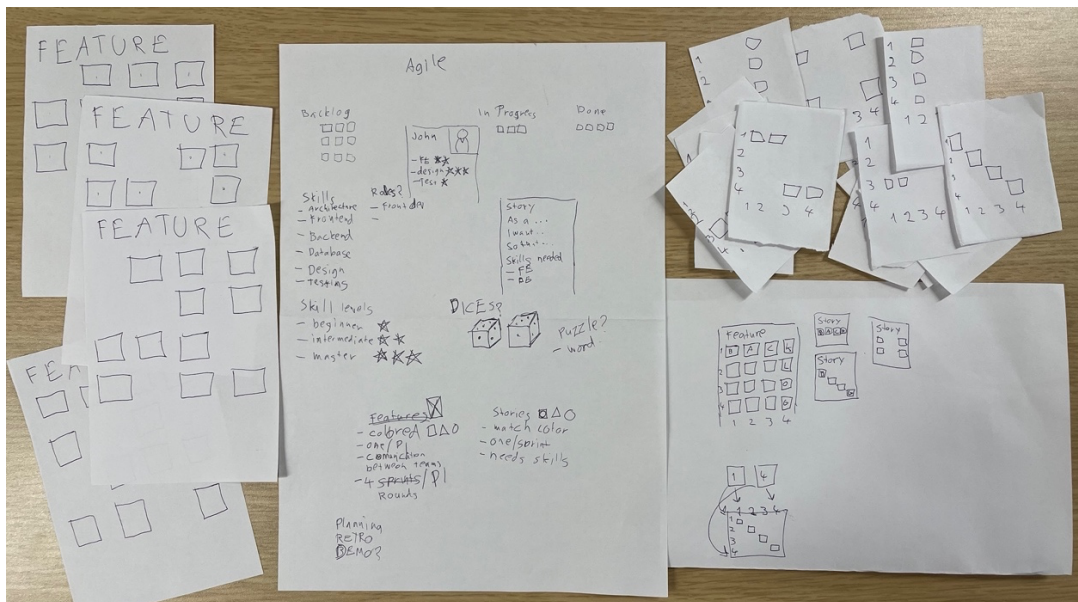 FEATURE
FEATURE
FEATURE
FEA
Agile
Backlog
In Progress
Done
John
- FE ★★
- design ★★★
- Test ★
Skills
- Architecture
- Frontend
- Backend
- Database
- Design
- Testing
Roles?
- Front dev
-
Story
As a ...
I want ..
So that ...
Skills needed
- FE
- DB
Skill levels
- beginner ★
- intermediate ★★
- master ★★★
DICES?
puzzle?
- word
Features
- colored
- one/PI
between teams
- 4 sprints/PI
Rounds
Stories
- match color
- one/sprint
- needs skills
Planning
RETRO
DEMO?
1
2
3
4
3 4
1
2
3
4
1 2
1
2
3
4
1 2 3 4
3
4
1 2 3 4
1 2 3 4
Feature
1 B A C K
2 L
3 O
4 G
1 2 3 4
Story
B A C K
Story
B
G
Story
1 4
1 2 3 4
1
2
3
4